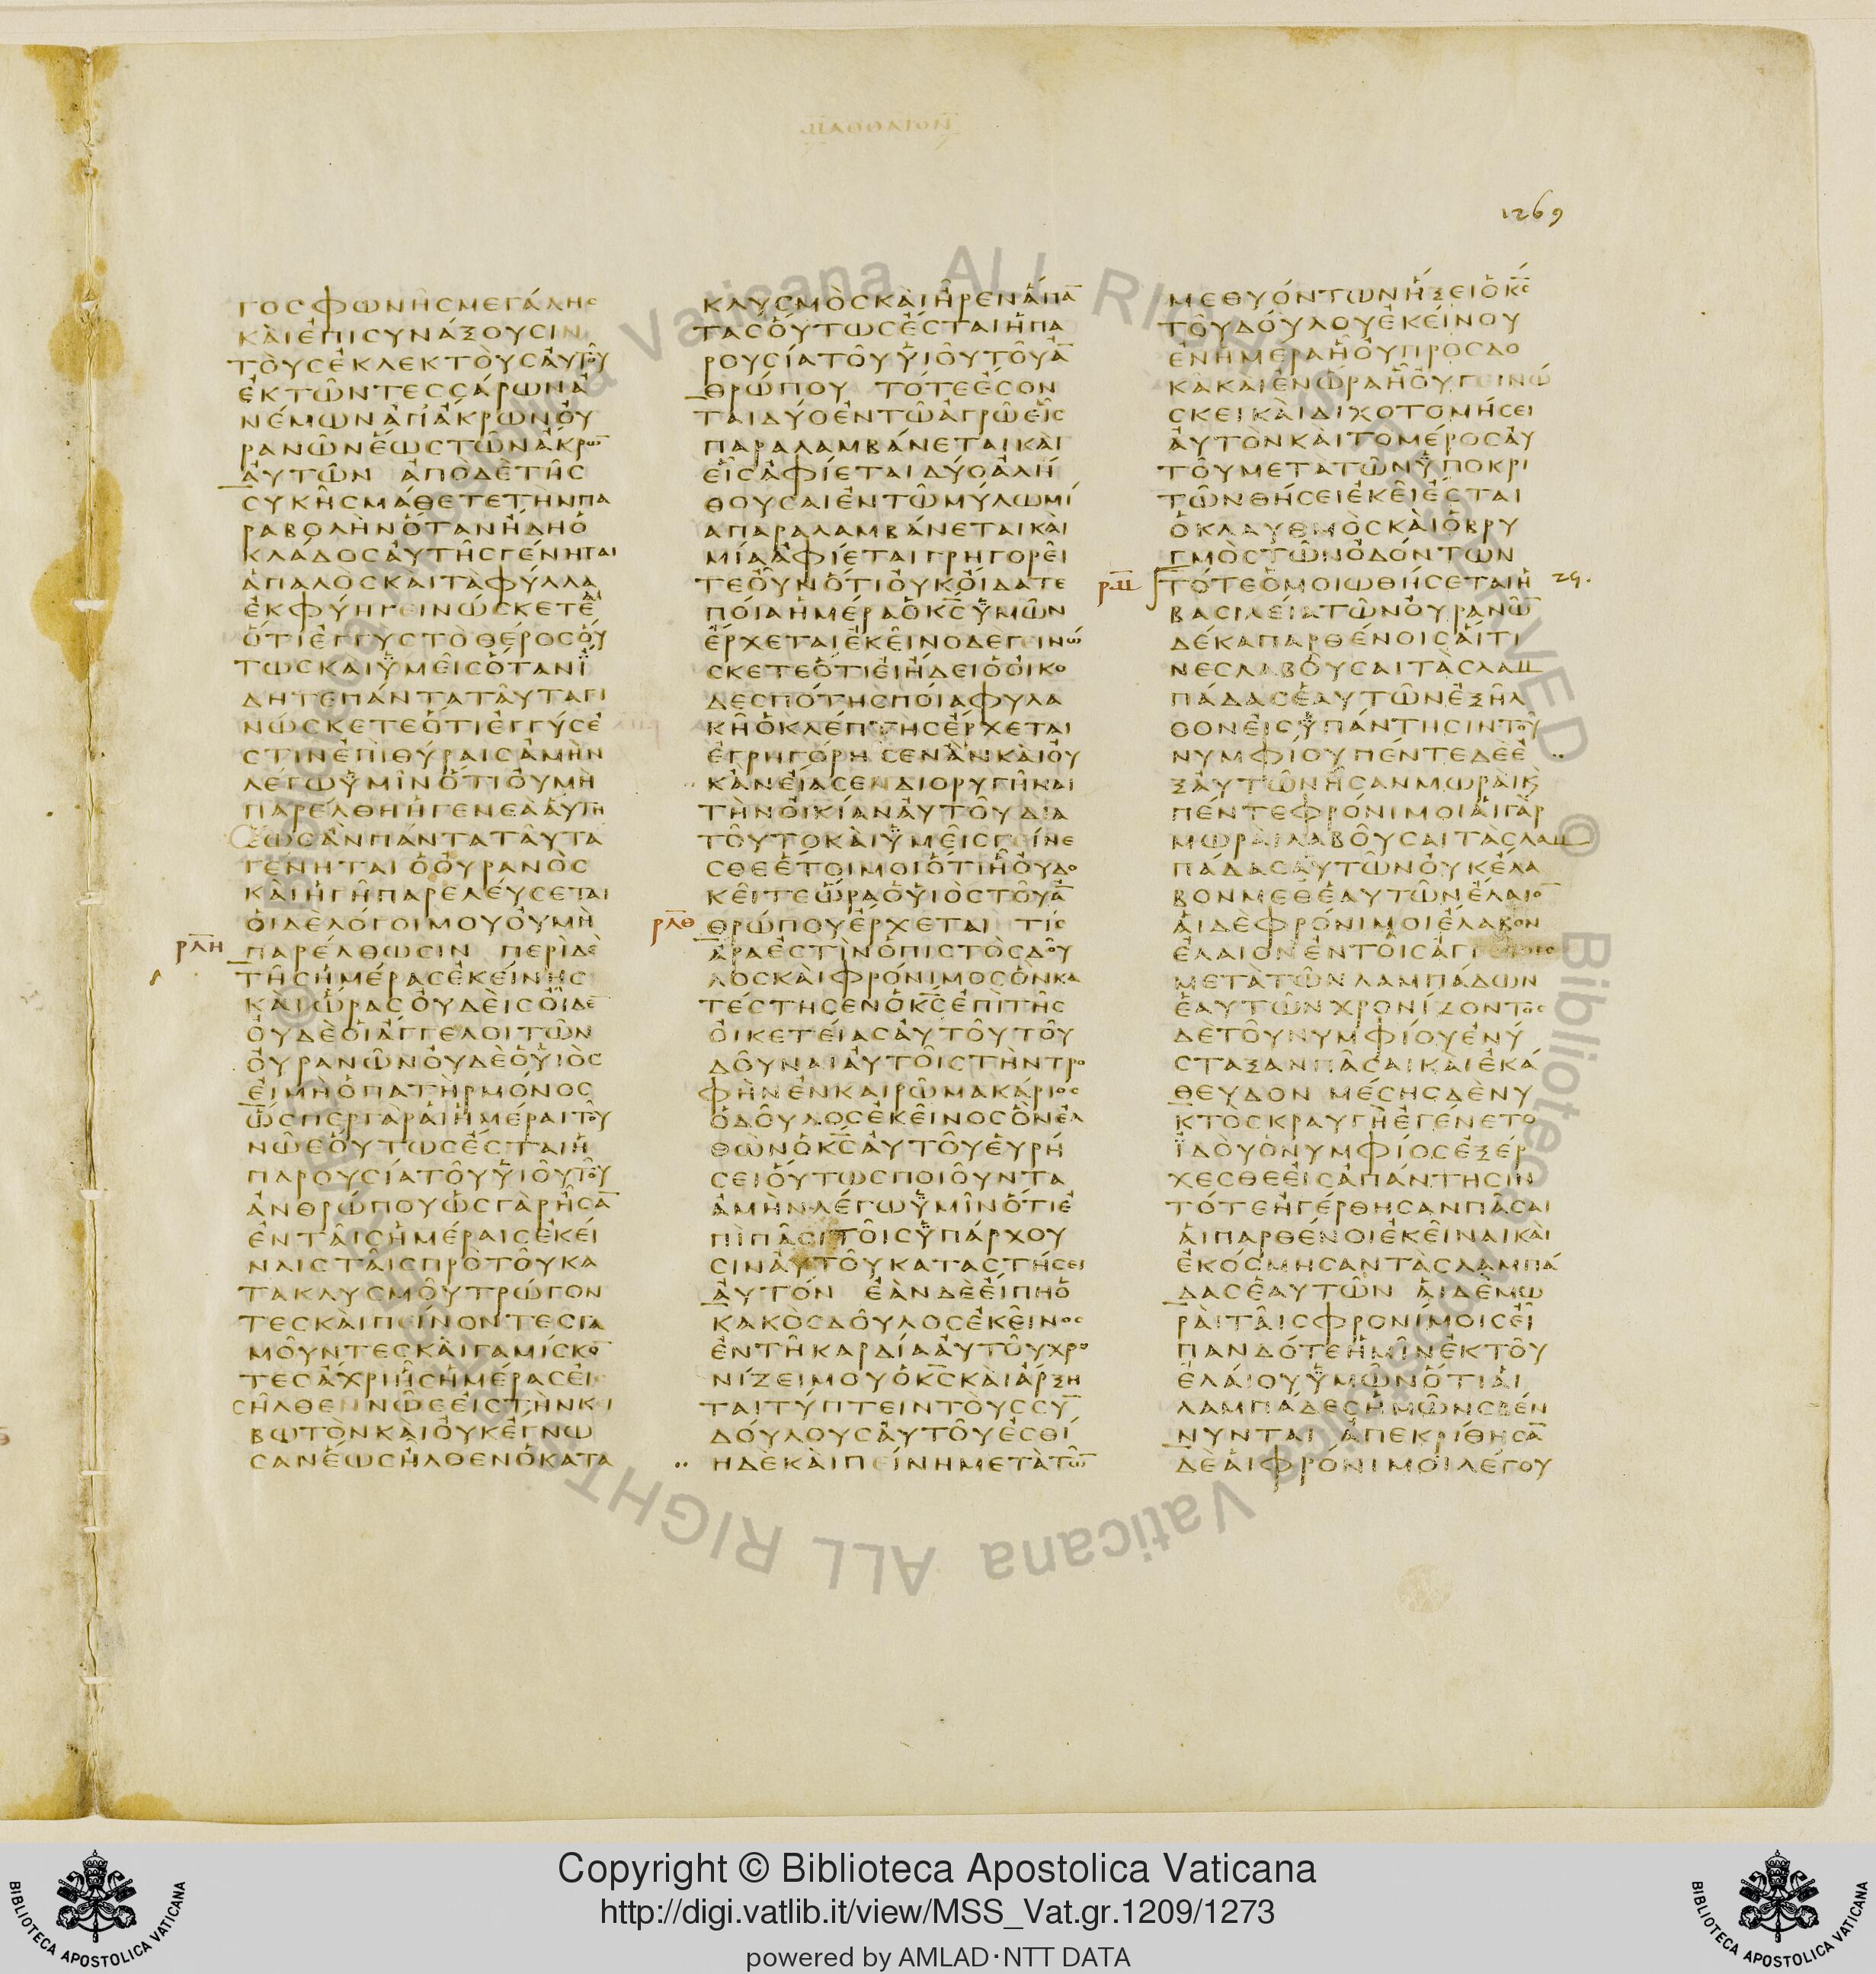 1269
ΓΟΣΦΩΝΗΣΜΕΓΑΛΗΣ
ΚΑΙΕΠΙΣΥΝΑΞΟΥΣΙΝ
ΤΟΥΣΕΚΛΕΚΤΟΥΣΑΥΤΟΥ
ΕΚΤΩΝΤΕΣΣΑΡΩΝΑ
ΝΕΜΩΝΑΠΑΚΡΩΝΟΥ
ΡΑΝΩΝΕΩΣΤΩΝΑΚΡΩ̅
ΑΥΤΩΝ ΑΠΟΔΕΤΗΣ
ΣΥΚΗΣΜΑΘΕΤΕΤΗΝΠΑ
ΡΑΒΟΛΗΝΟΤΑΝΗΔΗΟ
ΚΛΑΔΟΣΑΥΤΗΣΓΕΝΗΤΑΙ
ΑΠΑΛΟΣΚΑΙΤΑΦΥΛΛΑ
ΕΚΦΥΗΓΕΙΝΩΣΚΕΤΕ
ΟΤΙΕΓΓΥΣΤΟΘΕΡΟΣΟΥ
ΤΩΣΚΑΙΥΜΕΙΣΟΤΑΝΙ
ΔΗΤΕΠΑΝΤΑΤΑΥΤΑΓΙ
ΝΩΣΚΕΤΕΟΤΙΕΓΓΥΣΕ
ΣΤΙΝΕΠΙΘΥΡΑΙΣΑΜΗΝ
ΛΕΓΩΥΜΙΝΟΤΙΟΥΜΗ
ΠΑΡΕΛΘΗΗΓΕΝΕΑΑΥΤΗ
ΕΩΣΑΝΠΑΝΤΑΤΑΥΤΑ
ΓΕΝΗΤΑΙ ΟΟΥΡΑΝΟΣ
ΚΑΙΗΓΗΠΑΡΕΛΕΥΣΕΤΑΙ
ΟΙΔΕΛΟΓΟΙΜΟΥΟΥΜΗ
ρλη ΠΑΡΕΛΘΩΣΙΝ ΠΕΡΙΔΕ
ΤΗΣΗΜΕΡΑΣΕΚΕΙΝΗΣ
ΚΑΙΩΡΑΣΟΥΔΕΙΣΟΙΔΕ
ΟΥΔΕΟΙΑΓΓΕΛΟΙΤΩΝ
ΟΥΡΑΝΩΝΟΥΔΕΟΥΙΟΣ
ΕΙΜΗΟΠΑΤΗΡΜΟΝΟΣ
ΩΣΠΕΡΓΑΡΑΙΗΜΕΡΑΙΤΟΥ
ΝΩΕΟΥΤΩΣΕΣΤΑΙΗ
ΠΑΡΟΥΣΙΑΤΟΥΥΙΟΥΤΟΥ
ΑΝΘΡΩΠΟΥΩΣΓΑΡΗΣΑ̅
ΕΝΤΑΙΣΗΜΕΡΑΙΣΕΚΕΙ
ΝΑΙΣΤΑΙΣΠΡΟΤΟΥΚΑ
ΤΑΚΛΥΣΜΟΥΤΡΩΓΟΝ
ΤΕΣΚΑΙΠΕΙΝΟΝΤΕΣΓΑ
ΜΟΥΝΤΕΣΚΑΙΓΑΜΙΣΚΟ̅
ΤΕΣΑΧΡΙΗΣΗΜΕΡΑΣΕΙ
ΣΗΛΘΕΝΝΩΕΕΙΣΤΗΝΚΙ
ΒΩΤΟΝΚΑΙΟΥΚΕΓΝΩ
ΣΑΝΕΩΣΗΛΘΕΝΟΚΑΤΑ
ΚΛΥΣΜΟΣΚΑΙΗΡΕΝΑΠΑ̅
ΤΑΣΟΥΤΩΣΕΣΤΑΙΗΠΑ
ΡΟΥΣΙΑΤΟΥΥΙΟΥΤΟΥΑ̅
ΘΡΩΠΟΥ ΤΟΤΕΕΣΟΝ
ΤΑΙΔΥΟΕΝΤΩΑΓΡΩΕΙΣ
ΠΑΡΑΛΑΜΒΑΝΕΤΑΙΚΑΙ
ΕΙΣΑΦΙΕΤΑΙΔΥΟΑΛΗ
ΘΟΥΣΑΙΕΝΤΩΜΥΛΩΜΙ
ΑΠΑΡΑΛΑΜΒΑΝΕΤΑΙΚΑΙ
ΜΙΑΑΦΙΕΤΑΙΓΡΗΓΟΡΕΙ
ΤΕΟΥΝΟΤΙΟΥΚΟΙΔΑΤΕ
ΠΟΙΑΗΜΕΡΑΟΚ̅Σ̅ΥΜΩΝ
ΕΡΧΕΤΑΙΕΚΕΙΝΟΔΕΓΕΙΝΩ
ΣΚΕΤΕΟΤΙΕΙΗΔΕΙΟΟΙΚΟ
ΔΕΣΠΟΤΗΣΠΟΙΑΦΥΛΑ
ΚΗΟΚΛΕΠΤΗΣΕΡΧΕΤΑΙ
ΕΓΡΗΓΟΡΗΣΕΝΑΝΚΑΙΟΥ
ΚΑΝΕΙΑΣΕΝΔΙΟΡΥΓΗΝΑΙ
ΤΗΝΟΙΚΙΑΝΑΥΤΟΥΔΙΑ
ΤΟΥΤΟΚΑΙΥΜΕΙΣΓΕΙΝΕ
ΣΘΕΕΤΟΙΜΟΙΟΤΙΗΟΥΔΟ
ΚΕΙΤΕΩΡΑΟΥΙΟΣΤΟΥΑ̅
ρλθ ΘΡΩΠΟΥΕΡΧΕΤΑΙ ΤΙΣ
ΑΡΑΕΣΤΙΝΟΠΙΣΤΟΣΔΟΥ
ΛΟΣΚΑΙΦΡΟΝΙΜΟΣΟΝΚΑ
ΤΕΣΤΗΣΕΝΟΚ̅Σ̅ΕΠΙΤΗΣ
ΟΙΚΕΤΕΙΑΣΑΥΤΟΥΤΟΥ
ΔΟΥΝΑΙΑΥΤΟΙΣΤΗΝΤΡΟ
ΦΗΝΕΝΚΑΙΡΩΜΑΚΑΡΙΟΣ
ΟΔΟΥΛΟΣΕΚΕΙΝΟΣΟΝΕΛ
ΘΩΝΟΚ̅Σ̅ΑΥΤΟΥΕΥΡΗ
ΣΕΙΟΥΤΩΣΠΟΙΟΥΝΤΑ
ΑΜΗΝΛΕΓΩΥΜΙΝΟΤΙΕ
ΠΙΠΑΣΙΤΟΙΣΥΠΑΡΧΟΥ
ΣΙΝΑΥΤΟΥΚΑΤΑΣΤΗΣΕΙ
ΑΥΤΟΝ ΕΑΝΔΕΕΙΠΗΟ
ΚΑΚΟΣΔΟΥΛΟΣΕΚΕΙΝΟΣ
ΕΝΤΗΚΑΡΔΙΑΑΥΤΟΥΧΡΟ
ΝΙΖΕΙΜΟΥΟΚ̅Σ̅ΚΑΙΑΡΞΗ
ΤΑΙΤΥΠΤΕΙΝΤΟΥΣΣΥ̅
ΔΟΥΛΟΥΣΑΥΤΟΥΕΣΘΙ
ΗΔΕΚΑΙΠΕΙΝΗΜΕΤΑΤΩ̅
ΜΕΘΥΟΝΤΩΝΗΞΕΙΟΚ̅Σ̅
ΤΟΥΔΟΥΛΟΥΕΚΕΙΝΟΥ
ΕΝΗΜΕΡΑΗΟΥΠΡΟΣΔΟ
ΚΑΚΑΙΕΝΩΡΑΗΟΥΓΕΙΝΩ
ΣΚΕΙΚΑΙΔΙΧΟΤΟΜΗΣΕΙ
ΑΥΤΟΝΚΑΙΤΟΜΕΡΟΣΑΥ
ΤΟΥΜΕΤΑΤΩΝΥΠΟΚΡΙ
ΤΩΝΘΗΣΕΙΕΚΕΙΕΣΤΑΙ
ΟΚΛΑΥΘΜΟΣΚΑΙΟΒΡΥ
ΓΜΟΣΤΩΝΟΔΟΝΤΩΝ
ρμ ΤΟΤΕΟΜΟΙΩΘΗΣΕΤΑΙΗ
ΒΑΣΙΛΕΙΑΤΩΝΟΥΡΑΝΩ̅
ΔΕΚΑΠΑΡΘΕΝΟΙΣΑΙΤΙ
ΝΕΣΛΑΒΟΥΣΑΙΤΑΣΛΑΜ
ΠΑΔΑΣΕΑΥΤΩΝΕΞΗΛ
ΘΟΝΕΙΣΥΠΑΝΤΗΣΙΝΤΟΥ
ΝΥΜΦΙΟΥΠΕΝΤΕΔΕΕ
ΞΑΥΤΩΝΗΣΑΝΜΩΡΑΙΚ
ΠΕΝΤΕΦΡΟΝΙΜΟΙΑΙΓΑΡ
ΜΩΡΑΙΛΑΒΟΥΣΑΙΤΑΣΛΑΜ
ΠΑΔΑΣΑΥΤΩΝΟΥΚΕΛΑ
ΒΟΝΜΕΘΕΑΥΤΩΝΕΛΑΙΟ̅
ΑΙΔΕΦΡΟΝΙΜΟΙΕΛΑΒΟΝ
ΕΛΑΙΟΝΕΝΤΟΙΣΑΓΓ
ΜΕΤΑΤΩΝΛΑΜΠΑΔΩΝ
ΕΑΥΤΩΝΧΡΟΝΙΖΟΝΤΟΣ
ΔΕΤΟΥΝΥΜΦΙΟΥΕΝΥ
ΣΤΑΞΑΝΠΑΣΑΙΚΑΙΕΚΑ
ΘΕΥΔΟΝ ΜΕΣΗΣΔΕΝΥ
ΚΤΟΣΚΡΑΥΓΗΕΓΕΝΕΤΟ
ΙΔΟΥΟΝΥΜΦΙΟΣΕΞΕΡ
ΧΕΣΘΕΕΙΣΑΠΑΝΤΗΣΙΝ
ΤΟΤΕΗΓΕΡΘΗΣΑΝΠΑΣΑΙ
ΑΙΠΑΡΘΕΝΟΙΕΚΕΙΝΑΙΚΑΙ
ΕΚΟΣΜΗΣΑΝΤΑΣΛΑΜΠΑ
ΔΑΣΕΑΥΤΩΝ ΑΙΔΕΜΩ
ΡΑΙΤΑΙΣΦΡΟΝΙΜΟΙΣΕΙ
ΠΑΝΔΟΤΕΗΜΙΝΕΚΤΟΥ
ΕΛΑΙΟΥΥΜΩΝΟΤΙΑΙ
ΛΑΜΠΑΔΕΣΗΜΩΝΣΒΕΝ
ΝΥΝΤΑΙ ΑΠΕΚΡΙΘΗΣΑ̅
ΔΕΑΙΦΡΟΝΙΜΟΙΛΕΓΟΥ
Copyright © Biblioteca Apostolica Vaticana
http://digi.vatlib.it/view/MSS_Vat.gr.1209/1273
powered by AMLAD·NTT DATA
BIBLIOTECA APOSTOLICA VATICANA
BIBLIOTECA APOSTOLICA VATICANA